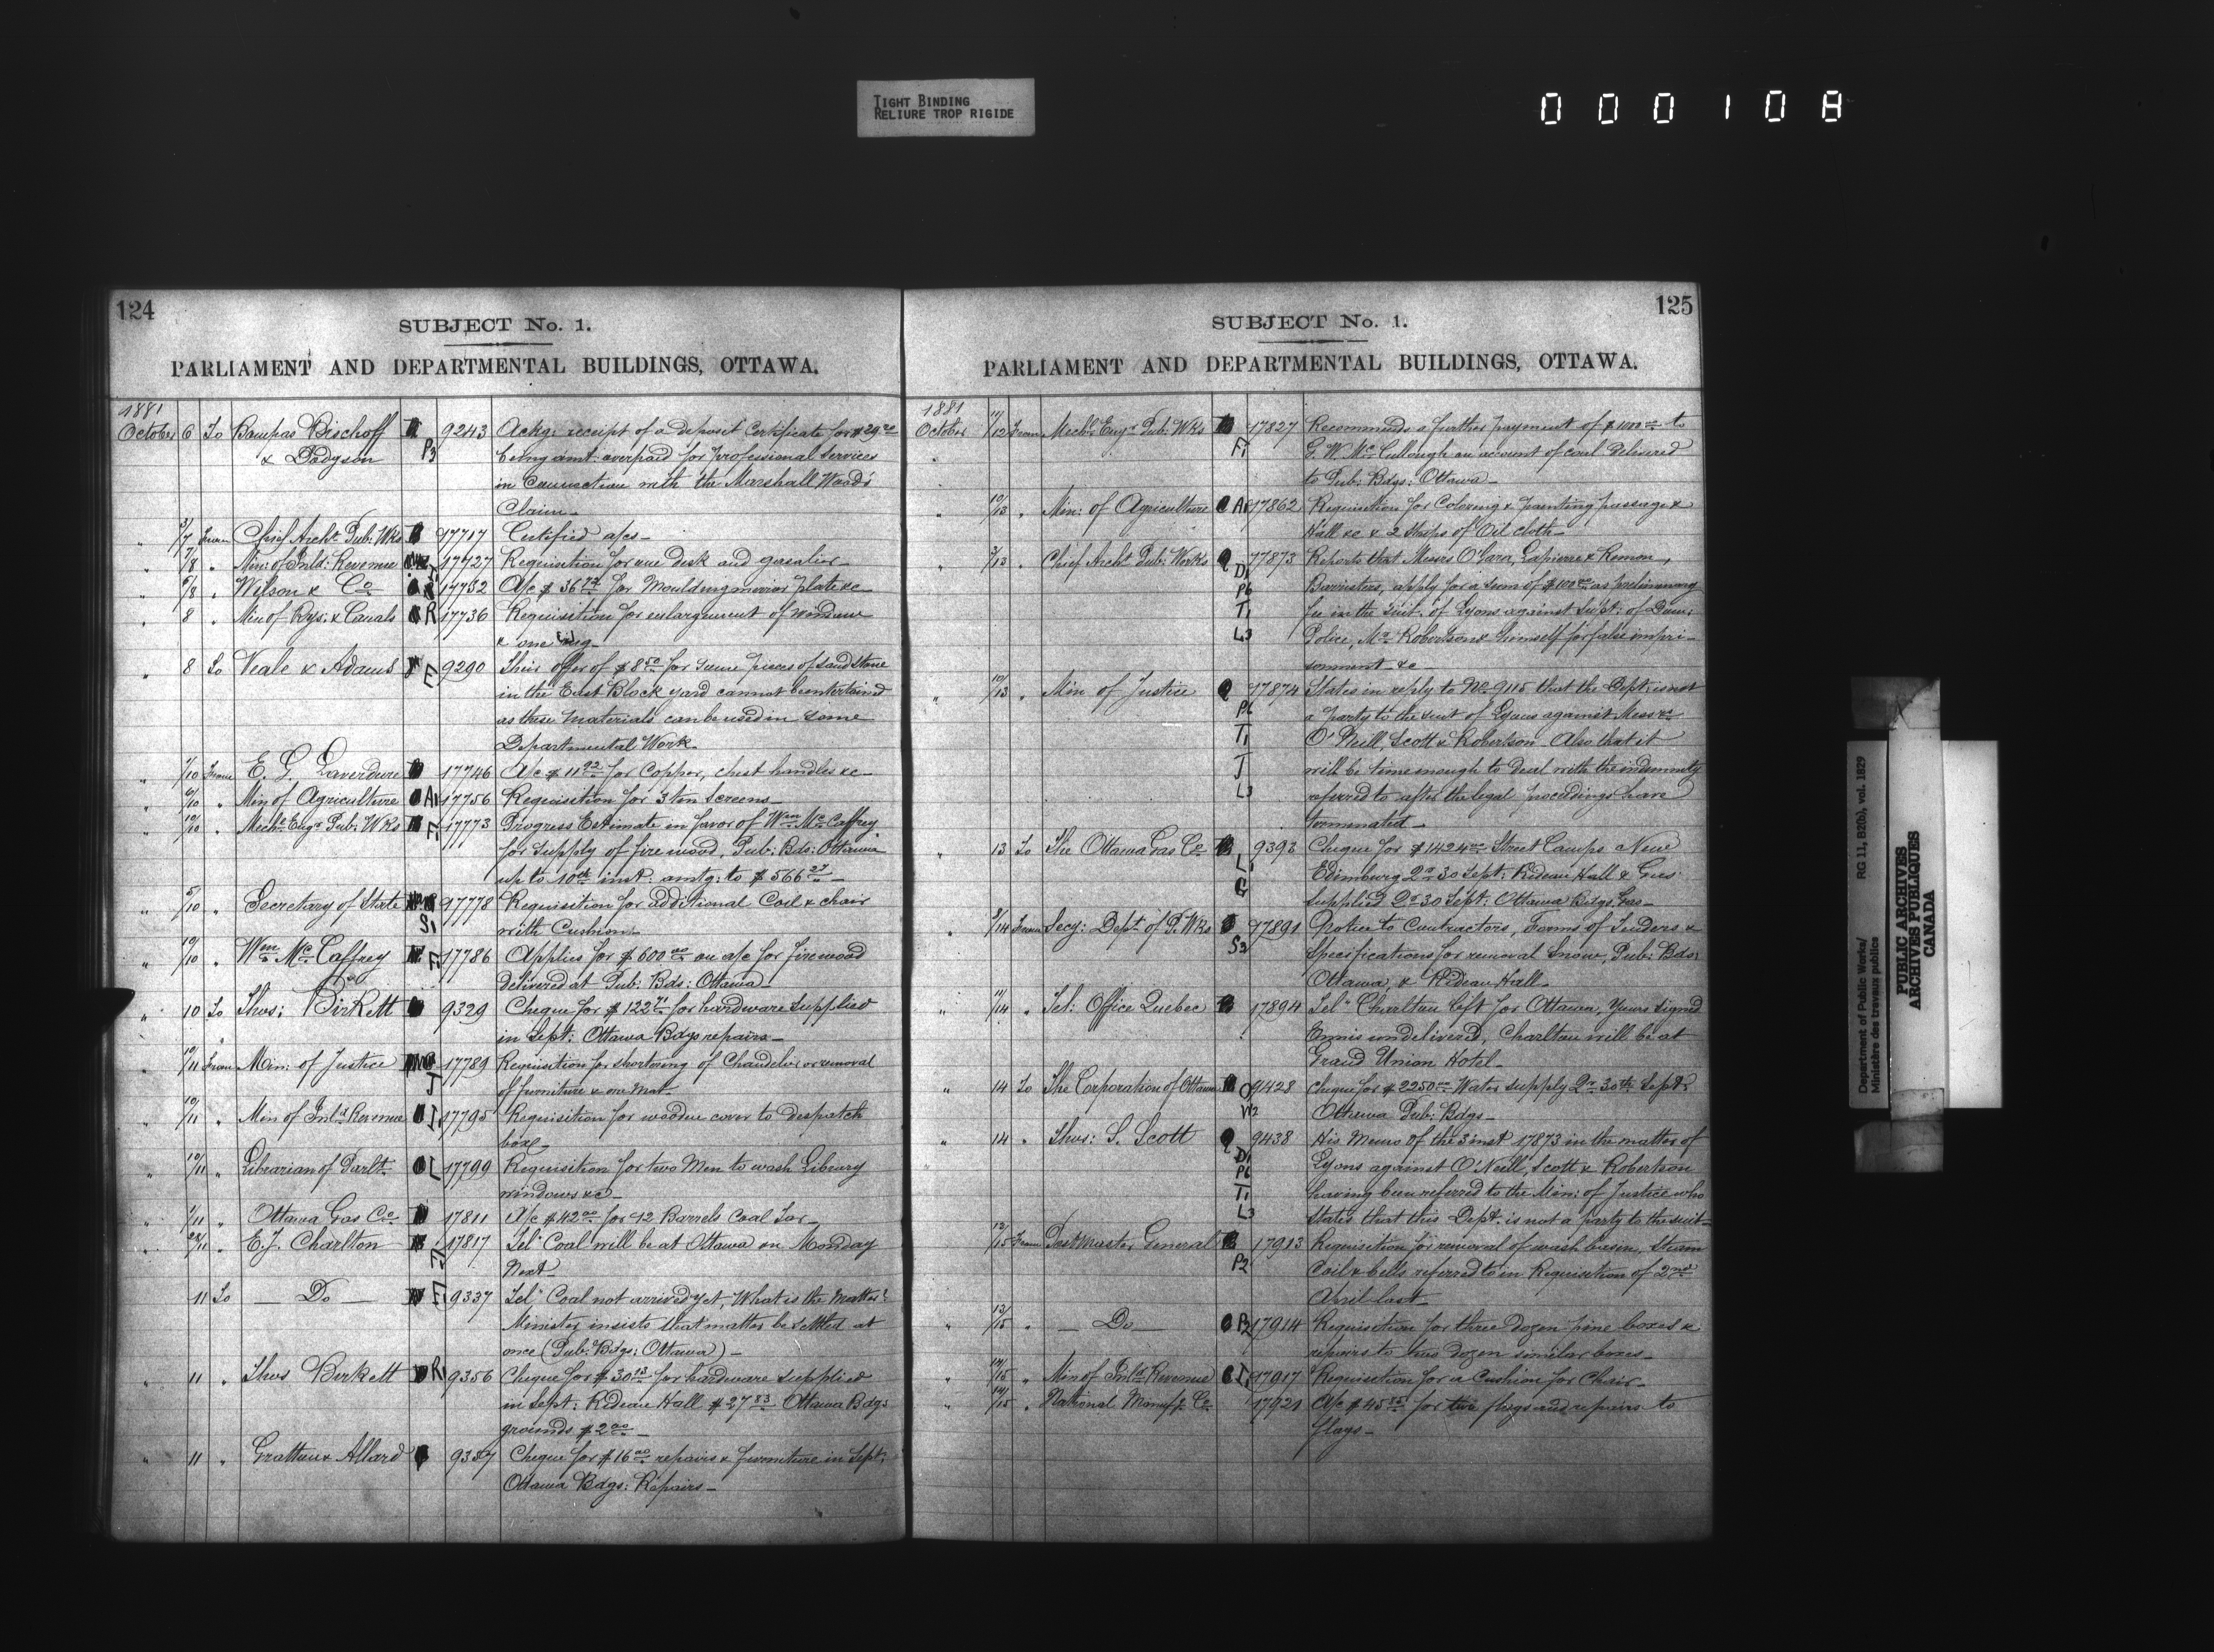 TIGHT BINDING
RELIURE TROP RIGIDE
000108
124
SUBJECT No. 1.
PARLIAMENT AND DEPARTMENTAL BUILDINGS, OTTAWA.
1881
October 6 To Bompas Bischoff 9243 Ackg: receipt of a deposit Certificate for $29
& Dodgson P3 being amt: overpaid for professional services
in Connection with the Marshall Wood's
Claim_
" 3/7 From Chief Archt. Pub: Wks 17717 Certified a/cs_
" 7/8 " Min: of Inld: Revenue 17727 Requisition for one desk and gasalier_
" 5/8 " Wilson & Co 17732 A/c $36 for Moulding mirror plate &c_
" 8 " Min of Rys. & Canals R 17736 Requisition for enlargement of Window
& one
" 8 To Veale & Adams E 9290 Their offer of $8.50 for some pieces of Sand Stone
in the East Block yard cannot be entertained
as these materials can be used in some
Departmental Work_
" 7/10 From E. G. Laverdure 17746 A/c $11.92 for Copper, chest handles &c_
" 6/10 " Min of Agriculture A1 17756 Requisition for 3 ten Screens_
" 10/10 " Mechl. Engr. Pub: Wks F1 17773 Progress Estimate in favor of Wm. McCaffrey
for supply of fire wood, Pub: Bds: Ottawa
up to 10th inst: amtg: to $566.27_
" 5/10 " Secretary of State 17778 Requisition for additional Coil & chair
S1 with Cushion_
" 10/10 " Wm. McCaffrey F1 17786 Applies for $600.00 on a/c for firewood
delivered at Pub: Bds: Ottawa_
" 10 To Thos: Birkett 9329 Cheque for $122.71 for hardware supplied
in Sept: Ottawa Bdgs repairs_
" 10/11 From Min: of Justice 17789 Requisition for shortening of Chandelier or removal
J of furniture & one Mat_
" 10/11 " Min of Inld. Revenue I1 17795 Requisition for wooden cover to despatch
box_
" 10/11 " Librarian of Parlt. L 17799 Requisition for two Men to wash Library
windows &c_
" 1/11 " Ottawa Gas Co. 17811 A/c $42.00 for 12 Barrels Coal Tar_
" " E. J. Charlton 17817 Telm Coal will be at Ottawa on Monday
F1 Next_
11 To _ Do _ F1 9337 Telm Coal not arrived yet, What is the Matter?
Minister insists that matter be settled at
once (Pub: Bdgs: Ottawa)_
" 11 " Thos Birkett R1 9356 Cheque for $30 for hardware supplied
in Sept: Rideau Hall $27.83 Ottawa Bdgs
grounds $2.00_
" 11 " Gratton & Allard 9357 Cheque for $16.00 repairs & furniture in Sept:
Ottawa Bdgs: Repairs_
125
SUBJECT No. 1.
PARLIAMENT AND DEPARTMENTAL BUILDINGS, OTTAWA.
1881
October 11/12 From Mechl. Engr. Pub: Wks 17827 Recommends a further payment of $1000.00 to
F1 G. W. McCullough on account of coal delivered
to Pub: Bdgs: Ottawa_
" 10/13 " Min: of Agriculture A1 17862 Requisition for Coloring & painting passage &
Hall &c & 2 strips of Oil cloth_
" 3/13 " Chief Archt Pub: Works 17873 Reports that Messrs O'Gara, Lapierre & Remon,
D1 Barristers, apply for a sum of $100.00 as preliminary
P6 fee in the suit of Lyons against Supt: of Dom:
T1 Police, Mr. Robertson & himself for false impri-
L3 sonment &c_
" 10/13 " Min of Justice 17874 States in reply to No. 9115 that the Dept: is not
P6 a party to the suit of Lyons against Messrs
T1 O'Neill, Scott & Robertson. Also that it
J will be time enough to deal with the indemnity
L3 referred to after the legal proceedings have
terminated_
" 13 To The Ottawa Gas Co. 9393 Cheque for $1424.00 Street Lamps New
L1 Edinburg Qr 30 Sept: Rideau Hall & Gas
G supplied Qr 30 Sept: Ottawa Bdgs, Gas_
" 3/14 From Secy: Dept. of P. Wks 17891 Notice to Contractors, Forms of Tenders &
S3 Specifications for removal Snow, Pub: Bds:
Ottawa, & Rideau Hall_
" 11/14 " Tel: Office Quebec 17894 Telm Charlton left for Ottawa, Yours signed
Ennis undelivered, Charlton will be at
Grand Union Hotel_
" 14 To The Corporation of Ottawa O 9428 Cheque for $2250.00 Water supply Qr 30th Sept:
W2 Ottawa Pub: Bdgs_
" 14 " Thos: S. Scott 9438 His Memo of the 3 inst 17873 in the matter of
D1 Lyons against O'Neill, Scott & Robertson
P6 having been referred to the Min: of Justice who
T1 states that this Dept. is not a party to the suit_
L3
12/15 From Postmaster General 17913 Requisition for removal of wash basin, steam
P2 Coil & bells referred to in Requisition of 2nd
April last_
" 13/15 " _ Do _ P2 17914 Requisition for three dozen pine boxes &
repairs to two dozen similar boxes_
" 14/15 " Min of Inld. Revenue I1 17917 Requisition for a Cushion for Chair_
" 14/15 " National Manufg. Co. 17921 A/c $45 for two flags and repairs to
flags_
Department of Public Works/ RG 11, B2(b), vol. 1829
Ministère des travaux publics
PUBLIC ARCHIVES
ARCHIVES PUBLIQUES
CANADA